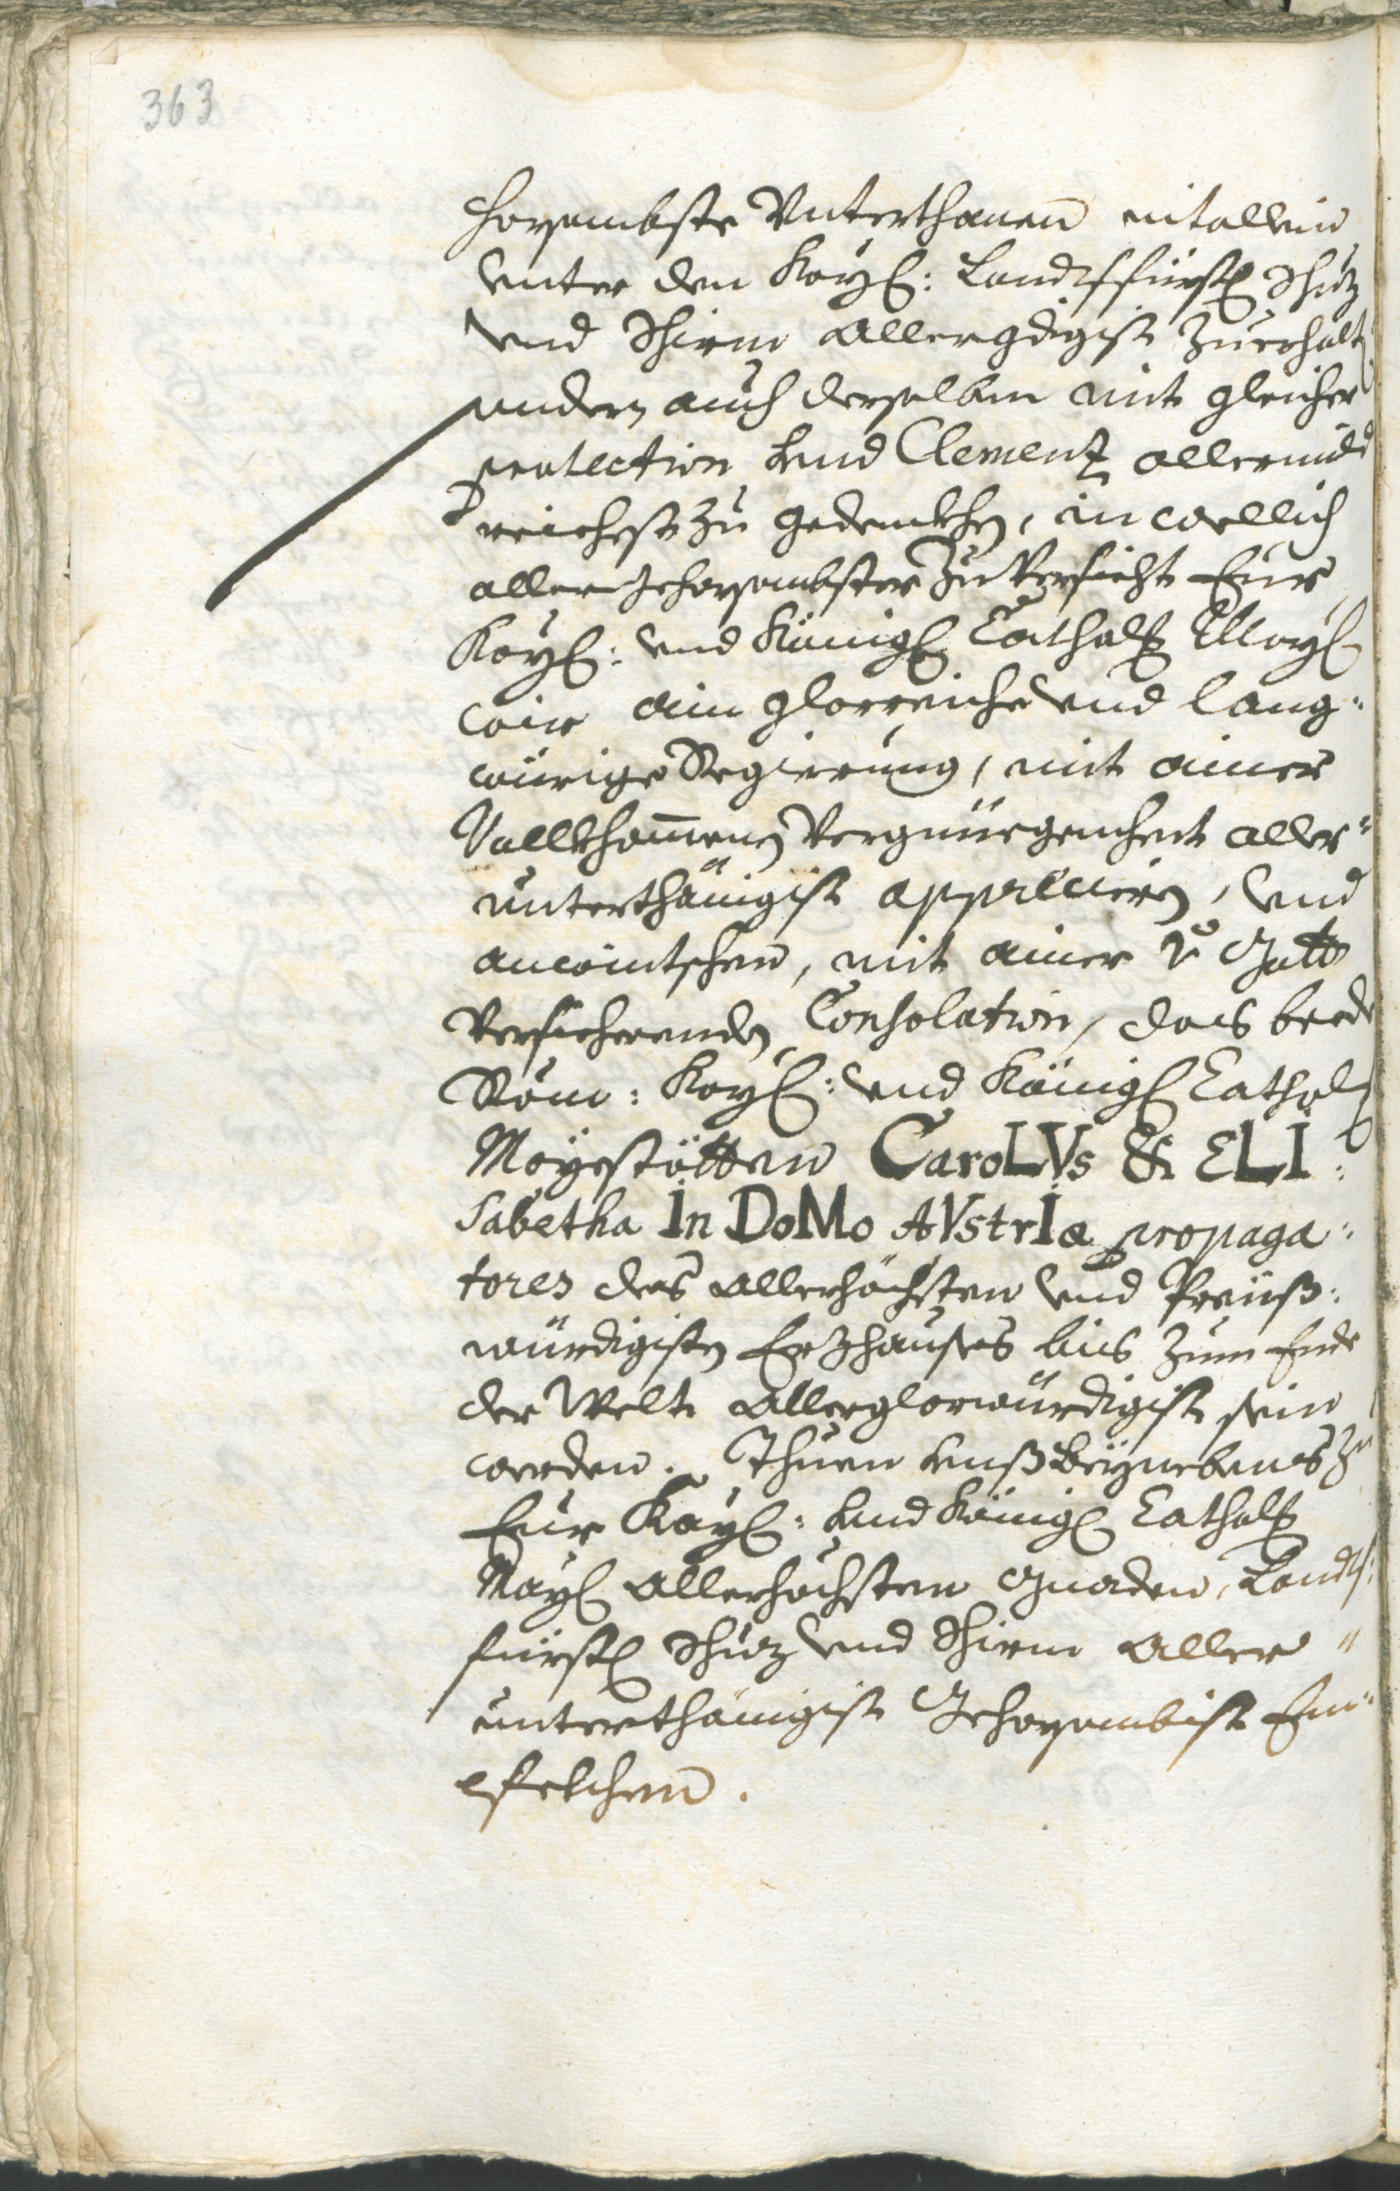 363
horsambste Vnterthanen nit allein
vnter den Kayl: Landtsfürstl Schuz
vnd Schirm Allergdigist zuerhalt
sondern auch derselben mit gleicher
protection vnd Clementz allermild
reichist zu gedenckhen, in welch
aller gehorsambster Zuversicht Eur
Kayl: vnd Königl Catholl Mayl
wir ain glorreiche vnd lang=
würige Regierung, mit ainer
Vollkhommenen Vergnüegenheit aller=
unterthänigist apprecieren, vnd
anwintschen, mit ainer v Gott
versicherenden Consolation, das beede
Röm: Kayl: vnd Königl Cathol
Mayestätten CaroLVs & ELI=
sabetha In DoMo AVstrIæ propaga=
tores des Allerhöchsten vnd Preiß=
würdigisten Erzhauses bis zum Ende
der Welt Allerglorwürdigist sein
werden. Thuen vnß beynebens zu
Eur Kayl: vnd Königl Catholl
Mayl Allerhöchsten Gnaden, Landts=
fürstl Schuz vnd Schirm Aller=
unterthänigist Gehorsambist Em=
pfelchen.